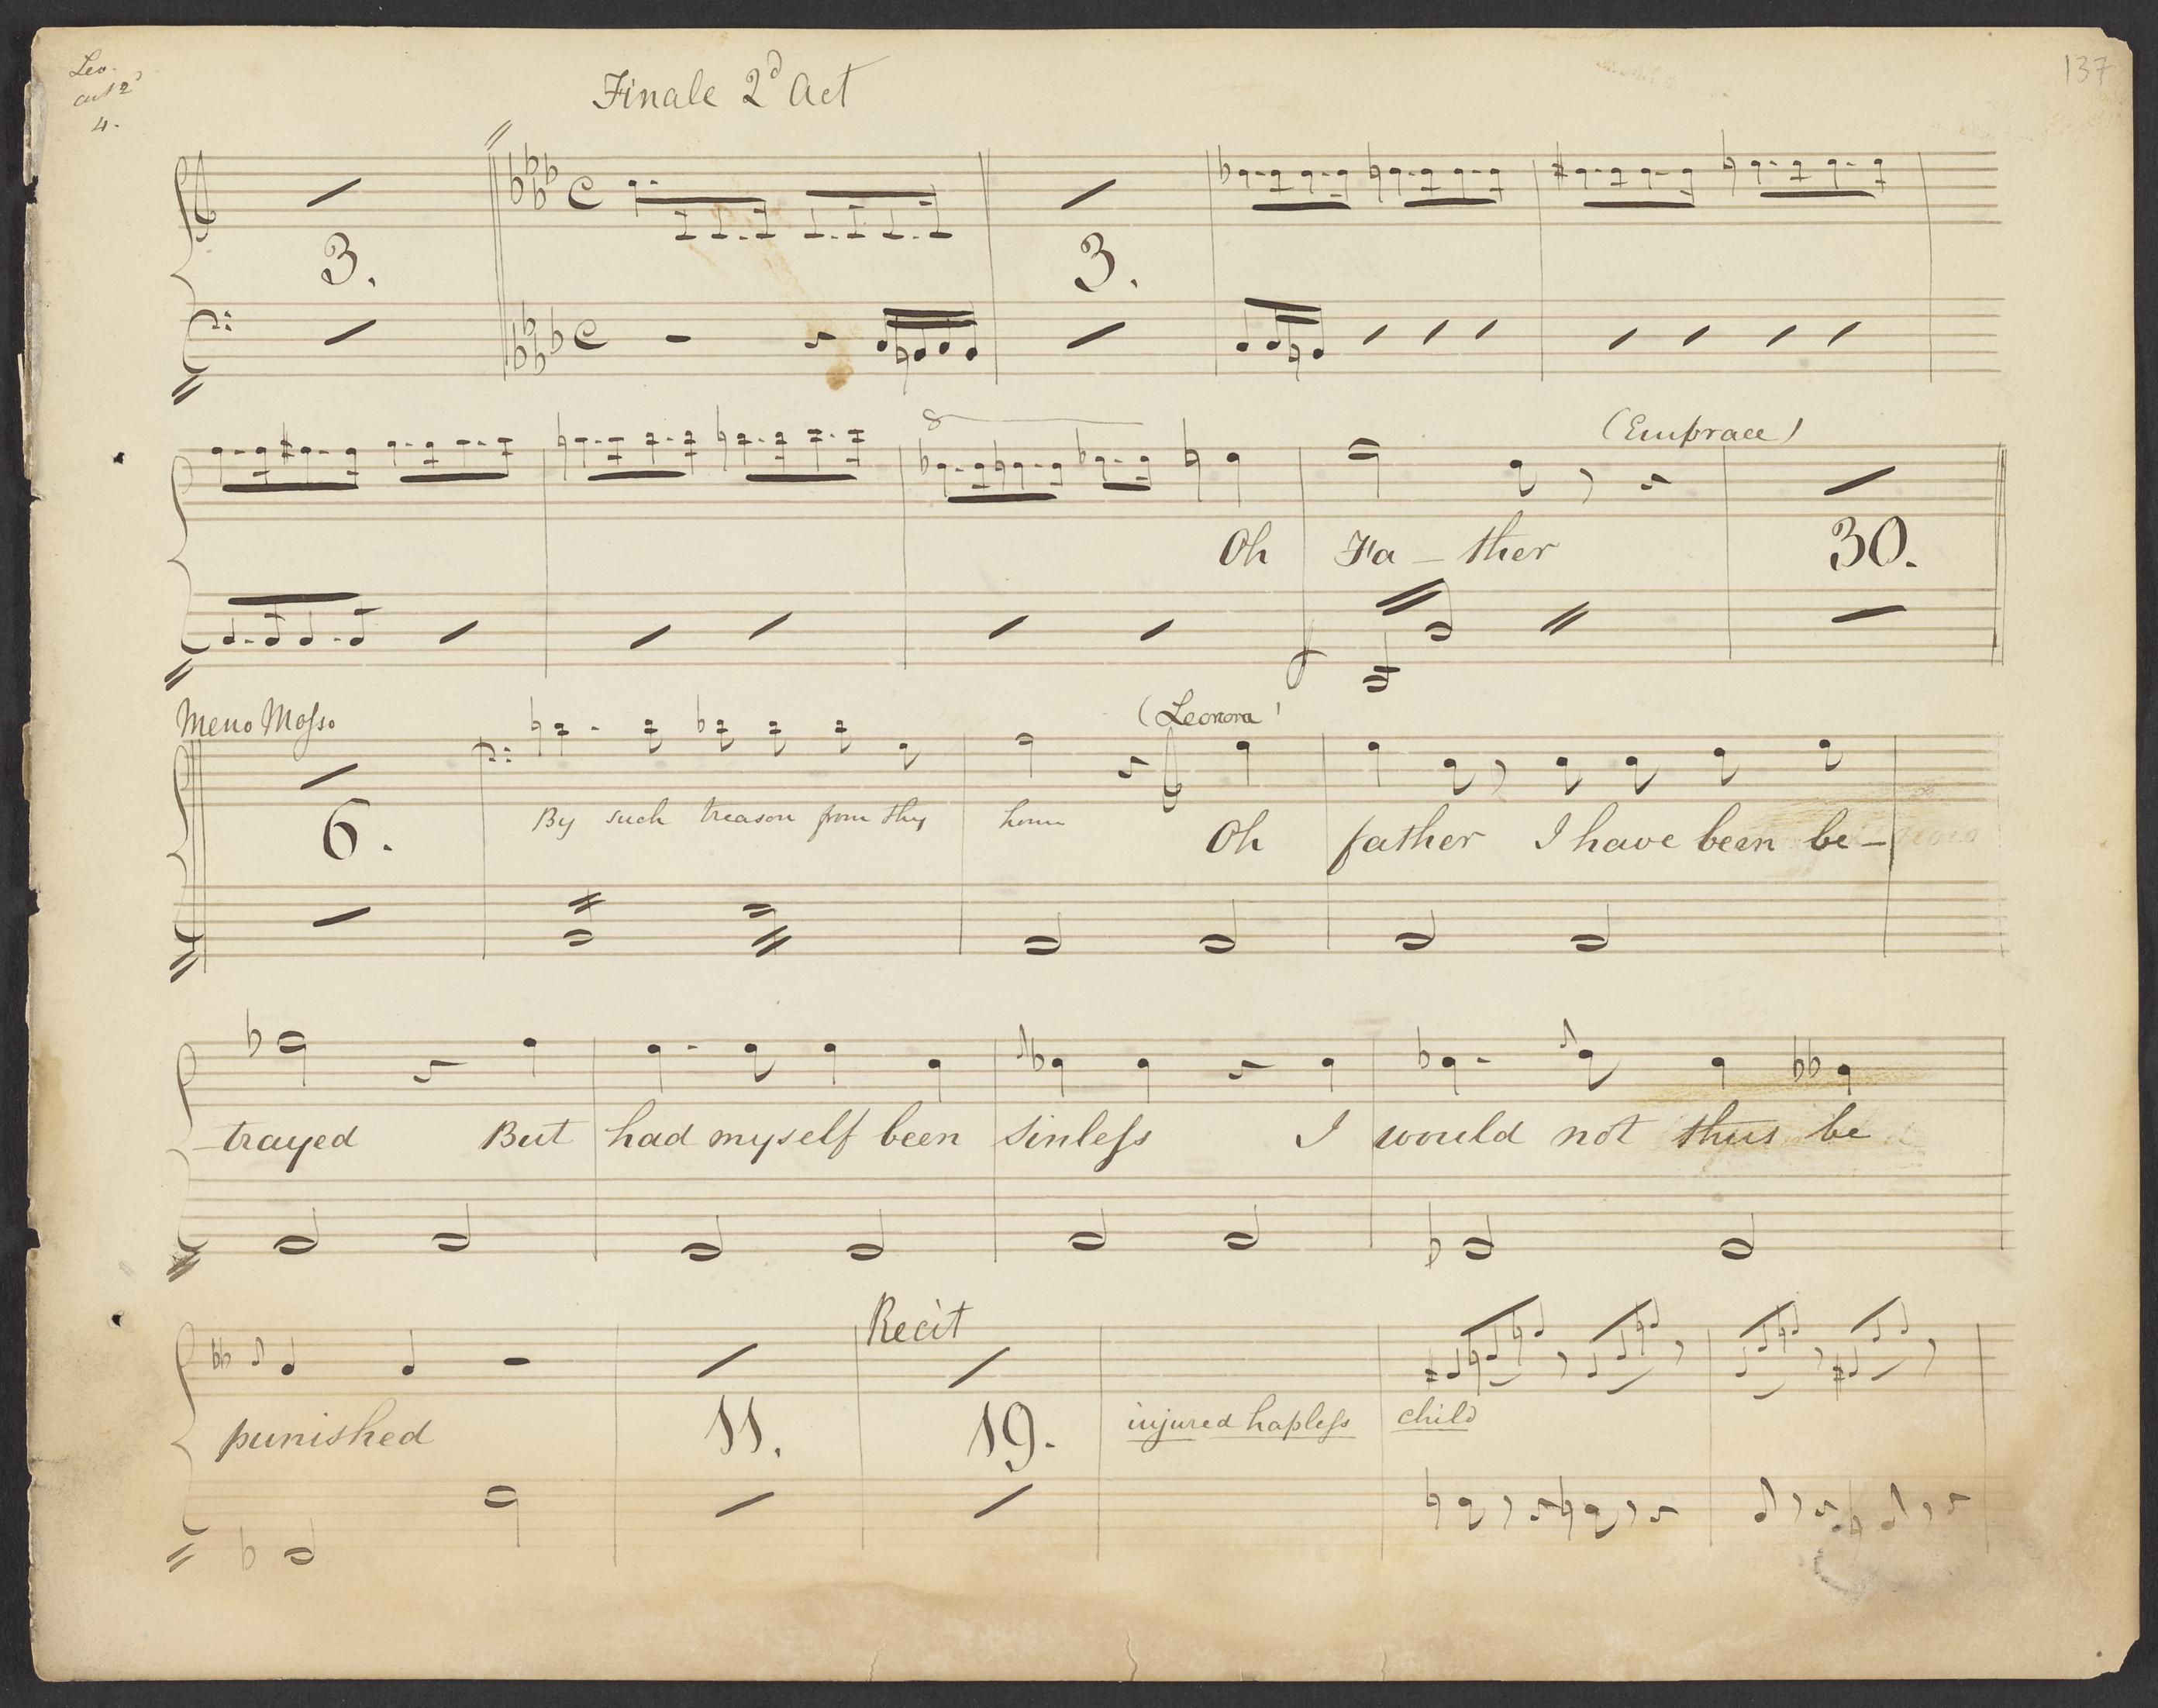 Leo.
act 2d
4.
137
Finale 2d Act
3. 3.
8
(Embrace)
Oh Fa - ther 30.
Meno Mosso
(Leonora)
6. By such treason from thy home Oh father I have been be-
-trayed But had myself been sinless I would not thus be
Recit
punished 11. 19. injured hapless child